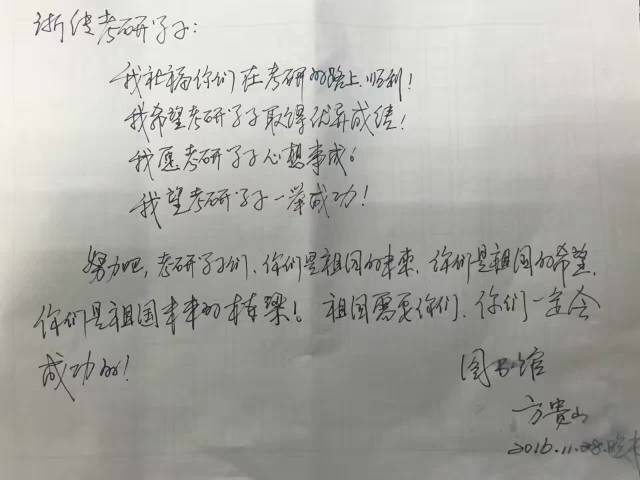 浙传考研学子：
我祝福你们在考研的路上顺利！
我希望考研学子取得优异成绩！
我愿考研学子心想事成！
我望考研学子一举成功！
努力吧，考研学子们，你们是祖国的未来，你们是祖国的希望，
你们是祖国未来的栋梁！祖国需要你们，你们一定会
成功的！
图书馆
方贵山
2016.11.28.晚